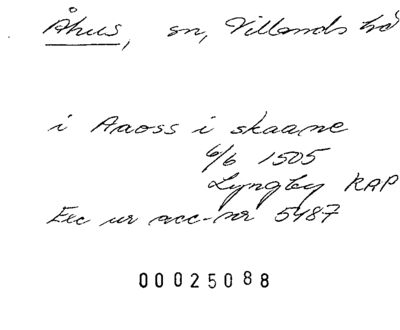 Åhus, sn, Villands hd
i Aaoss i skaane
6/6 1505
Lyngby KAP
Exc ur acc-nr 5487
00025088